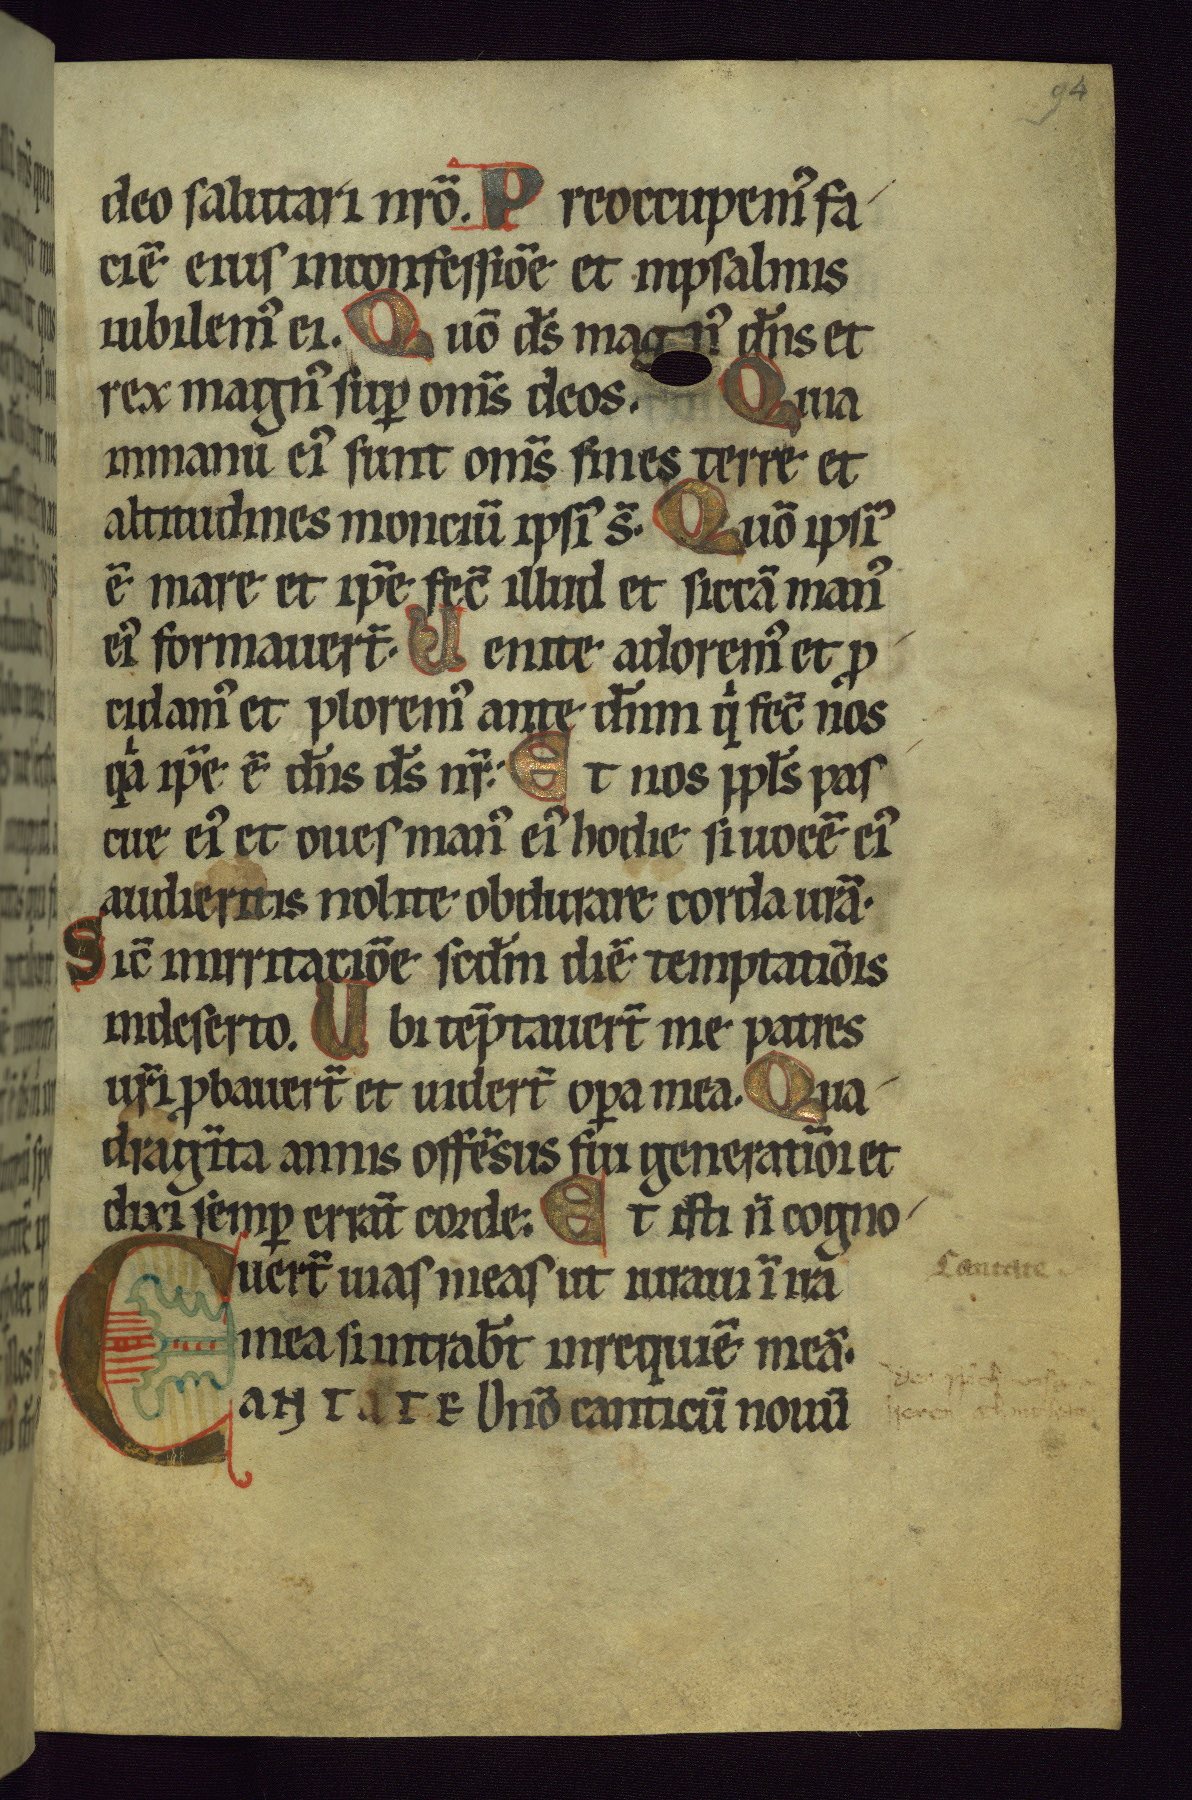 94
deo salutari nrō. Preoccupemꝰ fa
ciē eius inconfessiōe et inpsalmis
iubilemꝰ ei. Quō ds̄ magnꝰ dn̄s et
rex magnꝰ sup̲ om̄s deos. Quia
inmanu eiꝰ sunt om̄s fines terre et
altitudines monciū ipsiꝰ s̄. Quō ipsiꝰ
ē mare et ip̄e fec̄ illud et siccā manꝰ
eiꝰ formauert̄. Uenite adoremꝰ et ꝓ
cidamꝰ et ploremꝰ ante dn̄m qͥ fec̄ nos
qͥa ip̄e ē dn̄s ds̄ nr̄. Et nos ppl̄s pas
cue eiꝰ et oues manꝰ eiꝰ hodie si uocē eiꝰ
audieritis nolite obdurare corda urā.
Sic̄ inirritaciōe scdm̄ diē temptatiōis
indeserto. Ubi tēptauert̄ me patres
ur̄i ꝓbauert̄ et uidert̄ oꝑa mea. Qua
draḡita annis offēsus fui generatiōi et
dixi semꝑ errāt corde. Et isti n̄ cogno
uert̄ uias meas ut iuraui ī ira
mea si intrabt̄ inrequiē meā.
CANTATE Dn̄o canticū nouū
Cantate